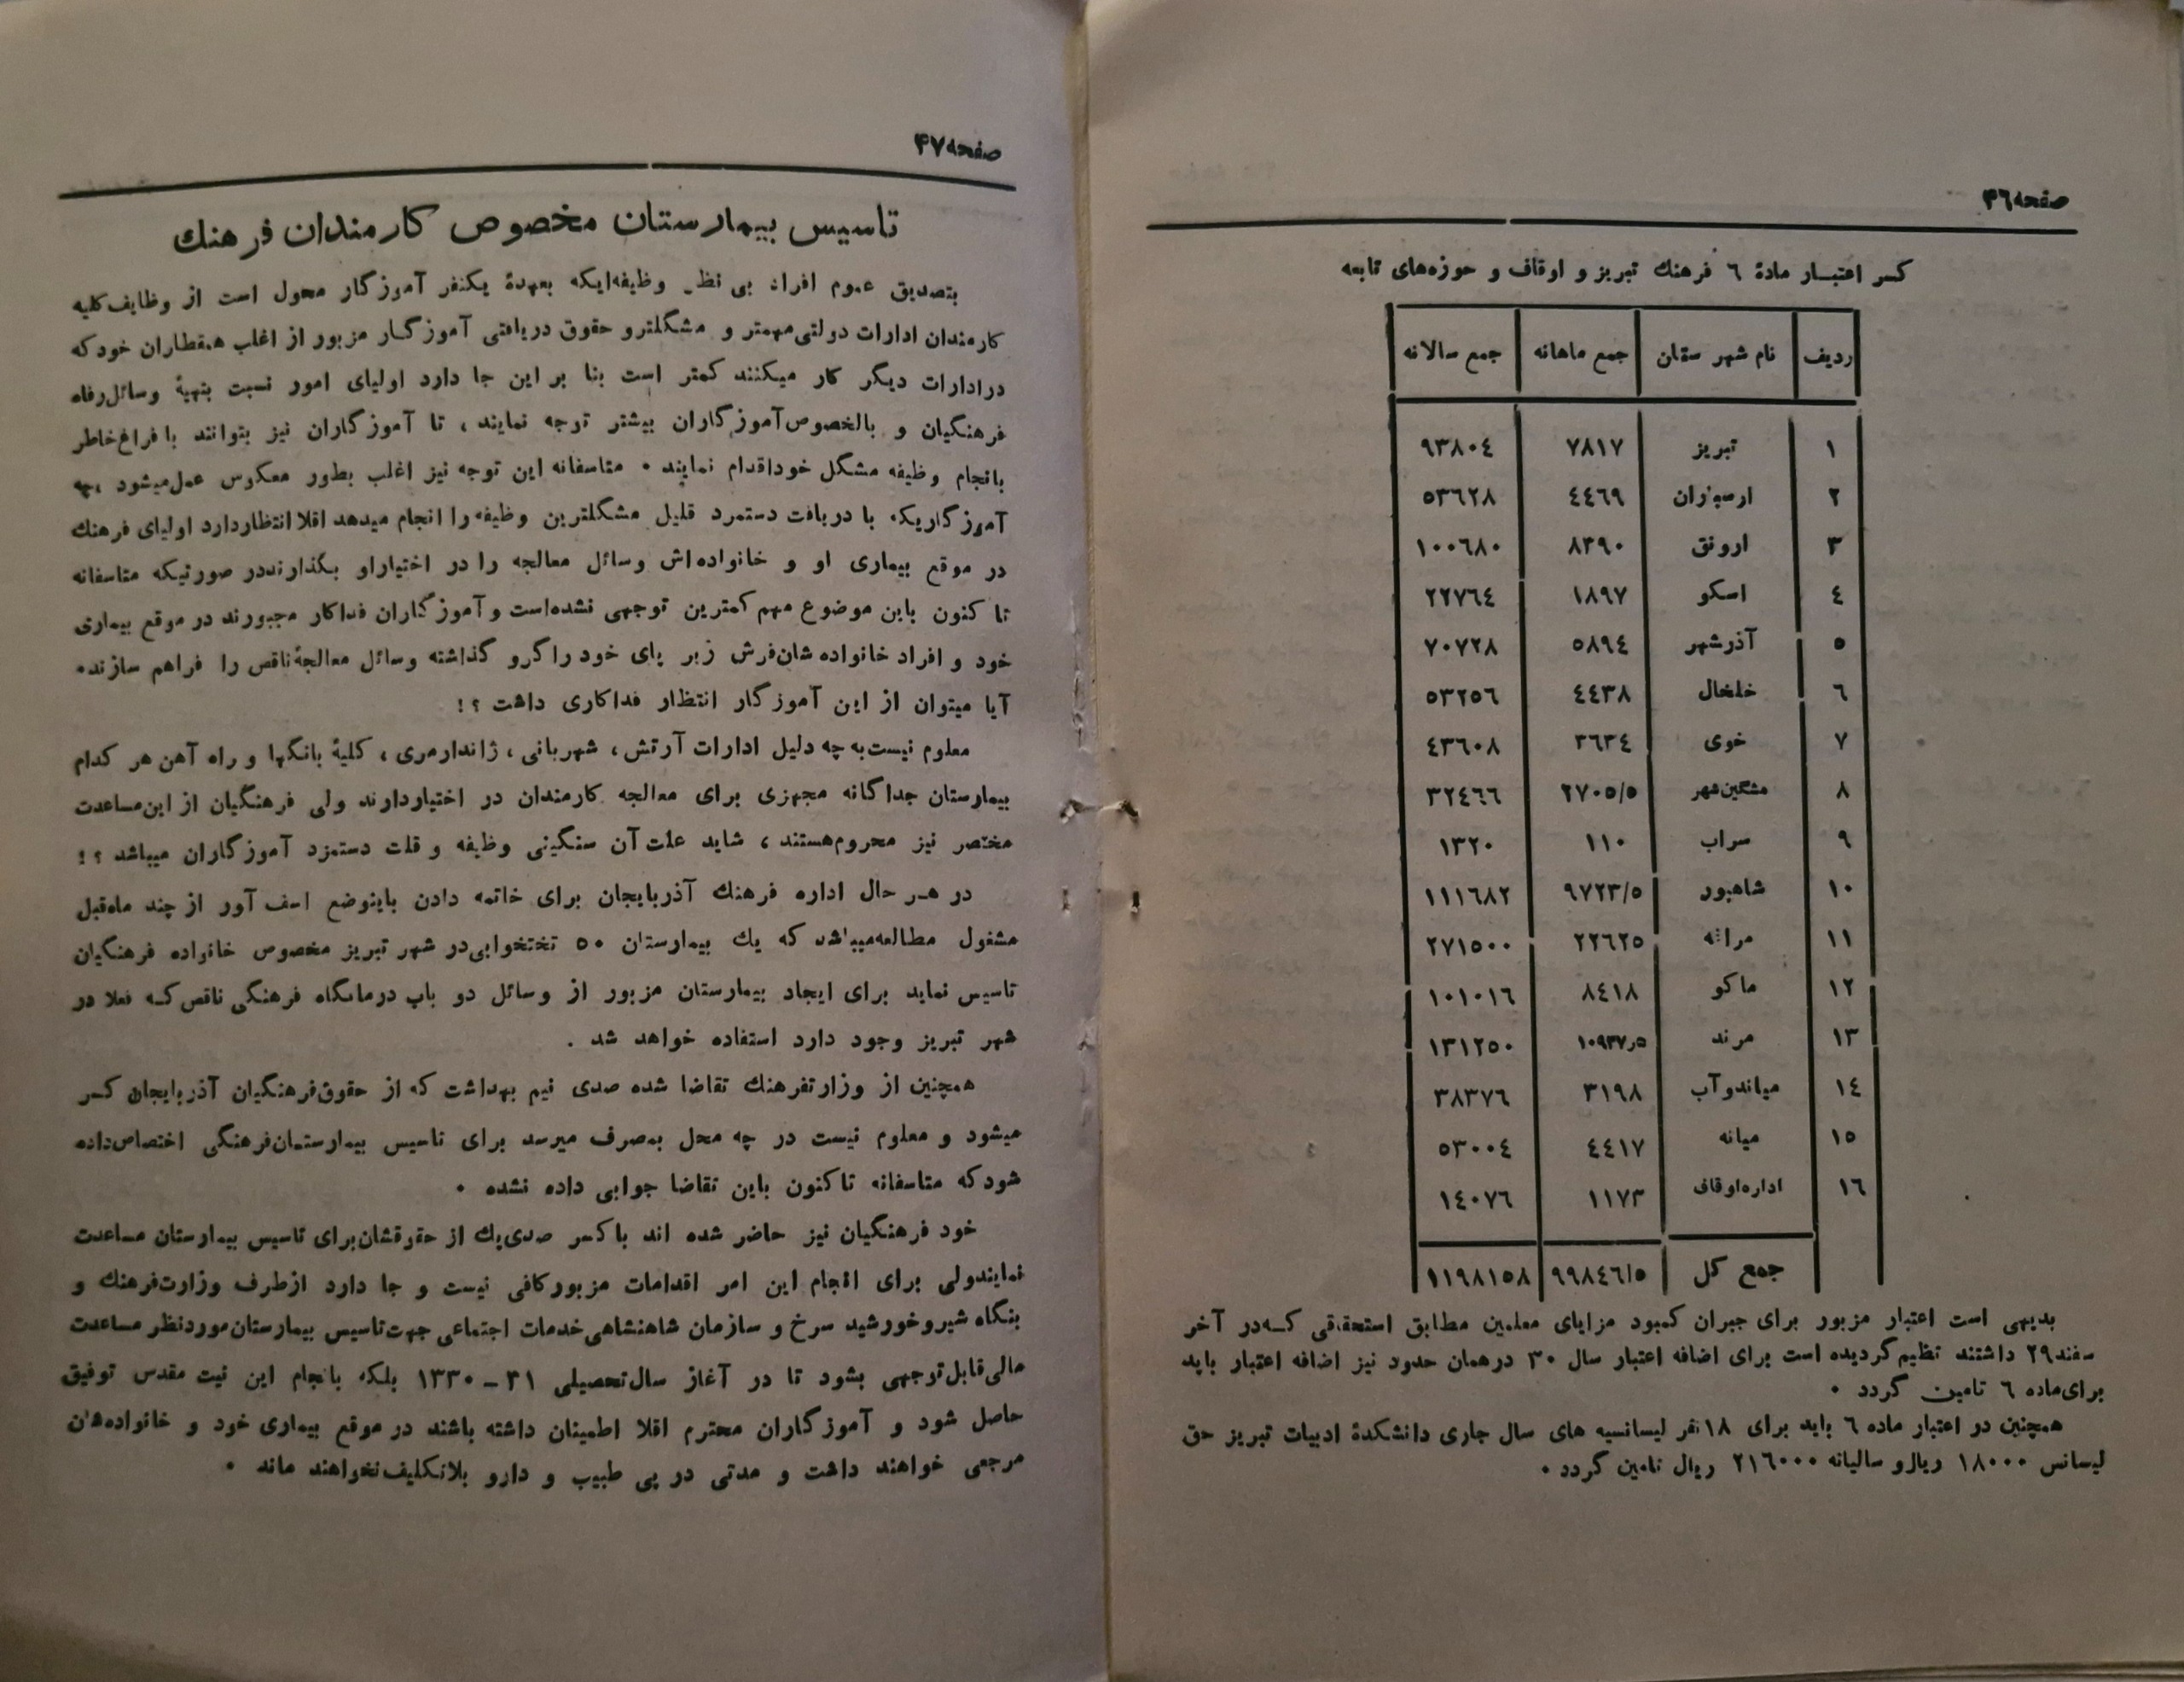 صفحه۴٦
کسر اعتبـار مادۀ ٦ فرهنك تبریز و اوقاف و حوزه‌های تابعه
ردیف نام شهرستان جمع ماهانه جمع سالانه
۱ تبریز ۷۸۱۷ ۹۳۸۰٤
۲ ارسباران ٤٤٦۹ ٥۳٦۲۸
۳ ارونق ۸۳۹۰ ۱۰۰٦۸۰
٤ اسکو ۱۸۹۷ ۲۲۷٦٤
٥ آذرشهر ٥۸۹٤ ۷۰۷۲۸
٦ خلخال ٤٤۳۸ ٥۳۲٥٦
۷ خوی ۳٦۳٤ ٤۳٦۰۸
۸ مشگین‌شهر ۲۷۰٥/٥ ۳۲٤٦٦
۹ سراب ۱۱۰ ۱۳۲۰
۱۰ شاهپور ۹۷۲۳/٥ ۱۱۱٦۸۲
۱۱ مراغه ۲۲٦۲٥ ۲۷۱٥۰۰
۱۲ ماکو ۸٤۱۸ ۱۰۱۰۱٦
۱۳ مرند ۱۰۹۳۷٫٥ ۱۳۱۲٥۰
۱٤ میاندوآب ۳۱۹۸ ۳۸۳۷٦
۱٥ میانه ٤٤۱۷ ٥۳۰۰٤
۱٦ اداره‌اوقاف ۱۱۷۳ ۱٤۰۷٦
جمع کل ۹۹۸٤٦/٥ ۱۱۹۸۱٥۸
بدیهی است اعتبار مزبور برای جبران کمبود مزایای معلمین مطابق استحقاقی کـه‌در آخر
سفند۲۹ داشتند تنظیم‌گردیده است برای اضافه اعتبار سال ۳۰ درهمان حدود نیز اضافه اعتبار باید
برای‌ماده ٦ تامین گردد ۰
همچنین در اعتبار ماده ٦ باید برای ۱۸نفر لیسانسیه های سال جاری دانشکدۀ ادبیات تبریز حق
لیسانس ۱۸۰۰۰ ریالو سالیانه ۲۱٦۰۰۰ ریال تامین گردد ۰
صفحه۴۷
تاسیس بیمارستان مخصوص کارمندان فرهنك
بتصدیق عموم افراد بی نظر وظیفه‌ایکه بعهدۀ یکنفر آموزگار محول است از وظایف‌کلیه
کارمندان ادارات دولتی‌مهمتر و مشگلترو حقوق دریافتی آموزگـار مزبور از اغلب همقطاران خودکه
درادارات دیگر کار میکنند کمتر است بنا بر این جا دارد اولیای امور نسبت بتهیۀ وسائل‌رفاه
فرهنگیان و بالخصوص‌آموزگاران بیشتر توجه نمایند ، تا آموزگاران نیز بتوانند بافراغ‌خاطر
بانجام وظیفه مشگل خوداقدام نمایند ۰ متاسفانه این توجه نیز اغلب بطور معکوس عمل‌میشود ،چه
آموزگاریکه با دریافت دستمزد قلیل مشگلترین وظیفه را انجام میدهد اقلا انتظاردارد اولیای فرهنك
در موقع بیماری او و خانواده‌اش وسائل معالجه را در اختیاراو بگذارنددر صورتیکه متاسفانه
تا کنون باین موضوع مهم کمترین توجهی نشده‌است وآموزگاران فداکار مجبورند در موقع بیماری
خود و افراد خانواده شان‌فرش زیر پای خود را گرو گذاشته وسائل معالجۀناقص را فراهم سازند۰
آیا میتوان از این آموزگار انتظار فداکاری داشت ؟!
معلوم نیست‌به چه دلیل ادارات آرتش ، شهربانی ، ژاندارمری ، کلیۀ بانگها و راه آهن هر کدام
بیمارستان جداگانه مجهزی برای معالجه کارمندان در اختیاردارند ولی فرهنگیان از این‌مساعدت
مختصر نیز محروم‌هستند ، شاید علت آن سنگینی وظیفه و قلت دستمزد آموزگاران میباشد ؟!
در هـر حال اداره فرهنك آذربایجان برای خاتمه دادن باینوضع اسف آور از چند ماه‌قبل
مشغول مطالعه‌میباشد که یك بیمارستان ٥۰ تختخوابی‌در شهر تبریز مخصوص خانواده فرهنگیان
تاسیس نماید برای ایجاد بیمارستان مزبور از وسائل دو باب درمانگاه فرهنگی ناقص‌کـه فعلا در
شهر تبریز وجود دارد استفاده خواهد شد .
همچنین از وزارتفرهنك تقاضا شده صدی نیم بهداشت که از حقوق‌فرهنگیان آذربایجان کسر
میشود و معلوم نیست در چه محل بمصرف میرسد برای تاسیس بیمارستان‌فرهنگی اختصاص‌داده
شودکه متاسفانه تاکنون باین تقاضا جوابی داده نشده ۰
خود فرهنگیان نیز حاضر شده اند باکسر صدی‌یك از حقوقشان‌برای تاسیس بیمارستان مساعدت
نمایندولی برای انجام این امر اقدامات مزبورکافی نیست و جا دارد ازطرف وزارت‌فرهنك و
بنگاه شیروخورشید سرخ و سازمان شاهنشاهی‌خدمات اجتماعی جهت‌تاسیس بیمارستان‌موردنظر مساعدت
مالی‌قابل‌توجهی بشود تا در آغاز سال‌تحصیلی ۳۱-۱۳۳۰ بلکه بانجام این نیت مقدس توفیق
حاصل شود و آموزگاران محترم اقلا اطمینان داشته باشند در موقع بیماری خود و خانواده‌شان
مرجعی خواهند داشت و مدتی در پی طبیب و دارو بلاتکلیف‌نخواهند ماند ۰